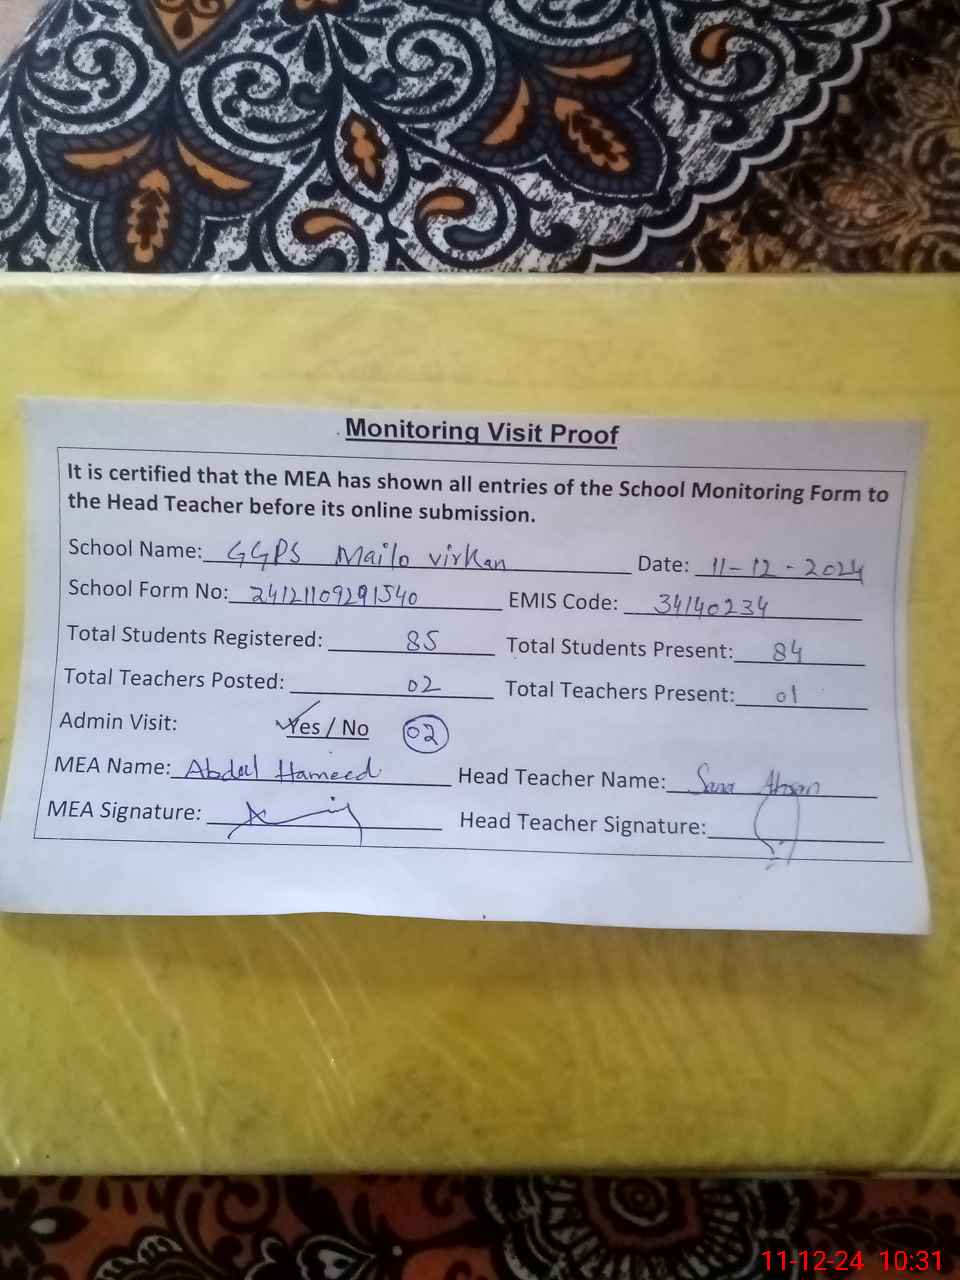 Monitoring Visit Proof
It is certified that the MEA has shown all entries of the School Monitoring Form to
the Head Teacher before its online submission.
School Name: GGPS Mailo virkan Date: 11-12-2024
School Form No: 24121109291540 EMIS Code: 34140234
Total Students Registered: 85 Total Students Present: 84
Total Teachers Posted: 02 Total Teachers Present: 01
Admin Visit: Yes / No 02
MEA Name: Abdul Hameed Head Teacher Name: Sana Ahsan
MEA Signature: Head Teacher Signature:
11-12-24 10:31